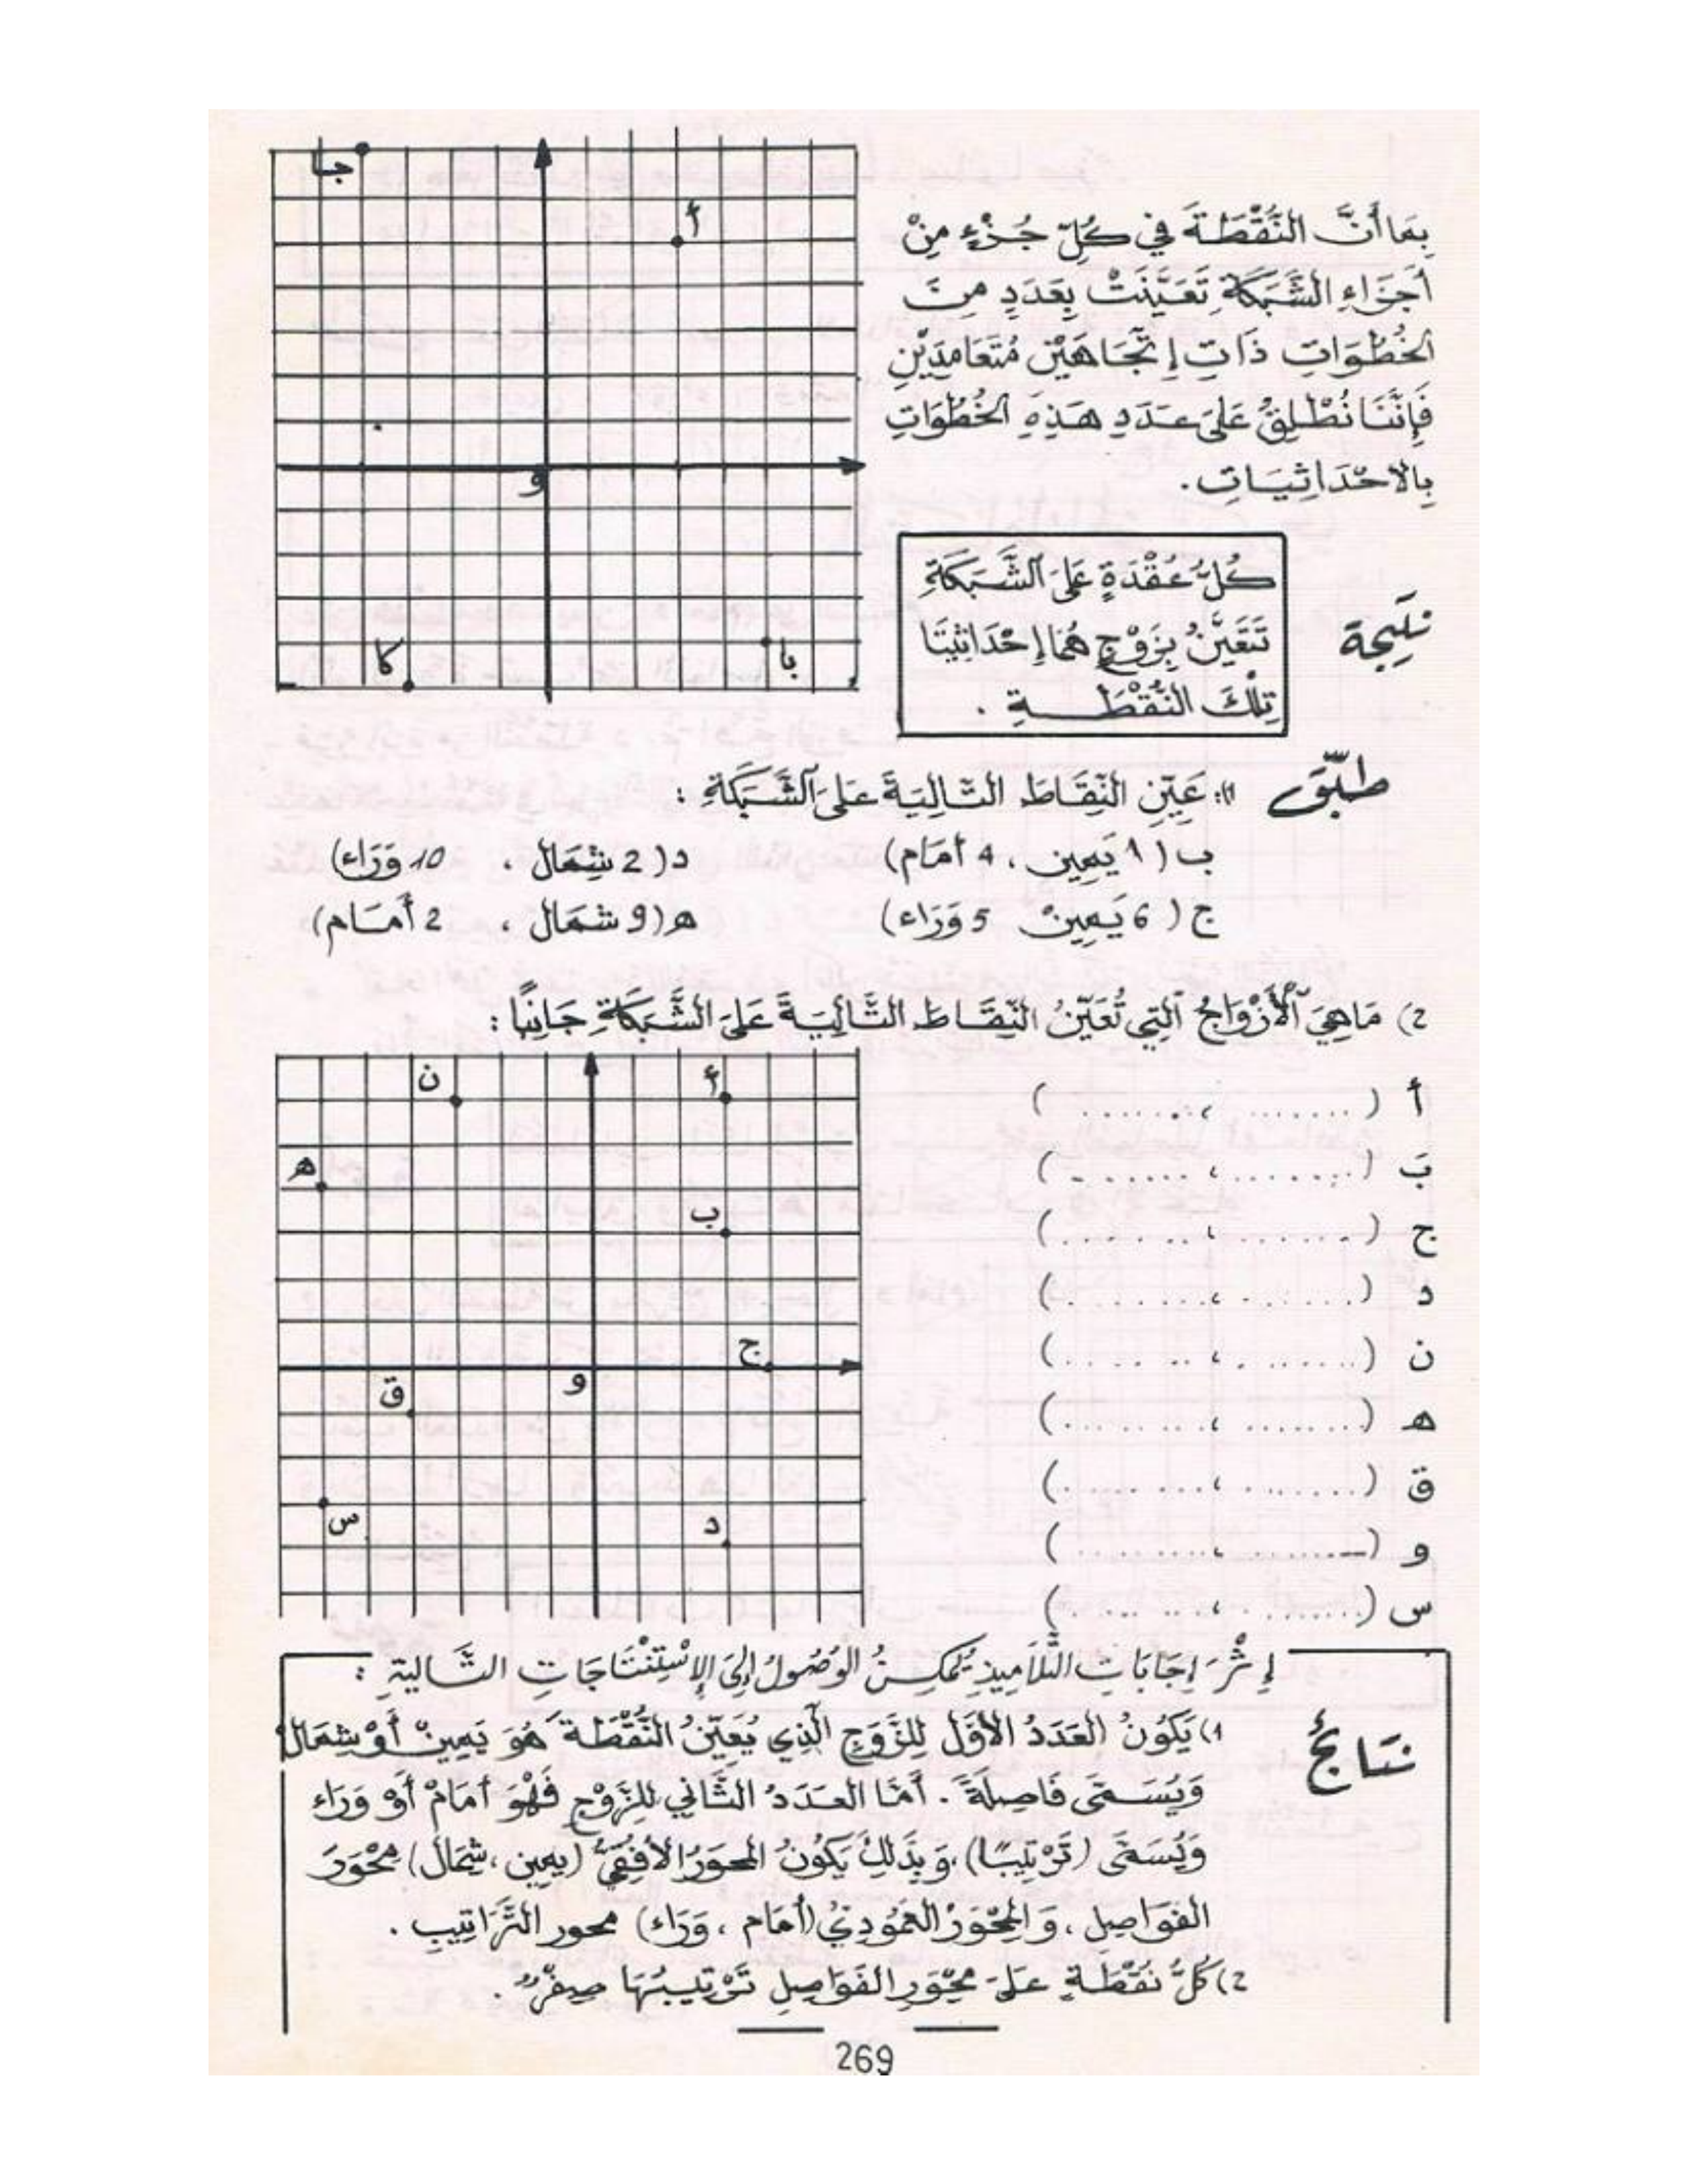 جا
أ
و
كا
با
بِمَا أَنَّ النُّقْطَةَ فِي كُلِّ جُزْءٍ مِنْ
أَجْزَاءِ الشَّبَكَةِ تَعَيَّنَتْ بِعَدَدٍ مِنَ
الخُطُوَاتِ ذَاتِ إتِّجَاهَيْنِ مُتَعَامِدَيْنِ
فَإِنَّنَا نُطْلِقُ عَلَى عَدَدِ هَذِهِ الخُطُوَاتِ
بِالاحْدَاثِيَاتِ .
نَتِيجة
كُلُّ عُقْدَةٍ عَلَى الشَّبَكَةِ
تَتَعَيَّنُ بِزَوْجٍ هُمَا إِحْدَاثِيَّتَا
تِلْكَ النُّقْطَةِ .
طبّق 1): عَيِّنِ النِّقَاطَ التَّالِيَةَ عَلَى الشَّبَكَةِ :
ب ( 1 يَمِين ، 4 أمَام) د( 2 شِمَال ، 10 وَرَاء)
ج ( 6 يَمِينْ 5 وَرَاء) ه( 9 شمَال ، 2 أَمَام)
2) مَاهِيَ الأَزْوَاجُ الَّتِي تُعَيِّنُ النِّقَاطَ التَّالِيَةَ عَلَى الشَّبَكَةِ جَانِبًا :
ن
أ
ه
ب
ج
و
ق
س
د
أ ( ....... ، ....... )
بَ ( ....... ، ....... )
ج ( ....... ، ....... )
د ( ....... ، ....... )
ن ( ....... ، ....... )
ه ( ....... ، ....... )
ق ( ....... ، ....... )
و ( ....... ، ....... )
س ( ....... ، ....... )
إثْرَ إجَابَاتِ التَّلاَمِيذِ يُمْكِنُ الوُصُولُ إلَى الإسْتِنْتَاجَاتِ التَّاليَةِ :
نتَائجُ
1) يَكُونُ العَدَدُ الأوَّل لِلزَّوْجِ الَّذِي يُعَيِّنُ النُّقْطَةَ هُوَ يَمِينْ أَوْ شِمَال
وَيُسَمَّى فَاصِلَةً . أَمَّا العَدَدُ الثَّانِي لِلزَّوْجِ فَهْوَ أمَامْ أَوْ وَرَاء
وَيُسَمَّى (تَرْتِيبًا) ، وَبِذَلِكَ يَكُونُ المحوَرُ الأفُقِيُّ (يمين ، شِمَال) مِحْوَرَ
الفَوَاصِلِ ، وَالمِحْوَرُ العَمُودِيُّ (أمَام ، وَرَاء) محور التَّرَاتِيبِ .
2) كُلُّ نُقْطَةٍ عَلَى مِحْوَرِ الفَوَاصِلِ تَرْتِيبُهَا صِفْرٌ .
269